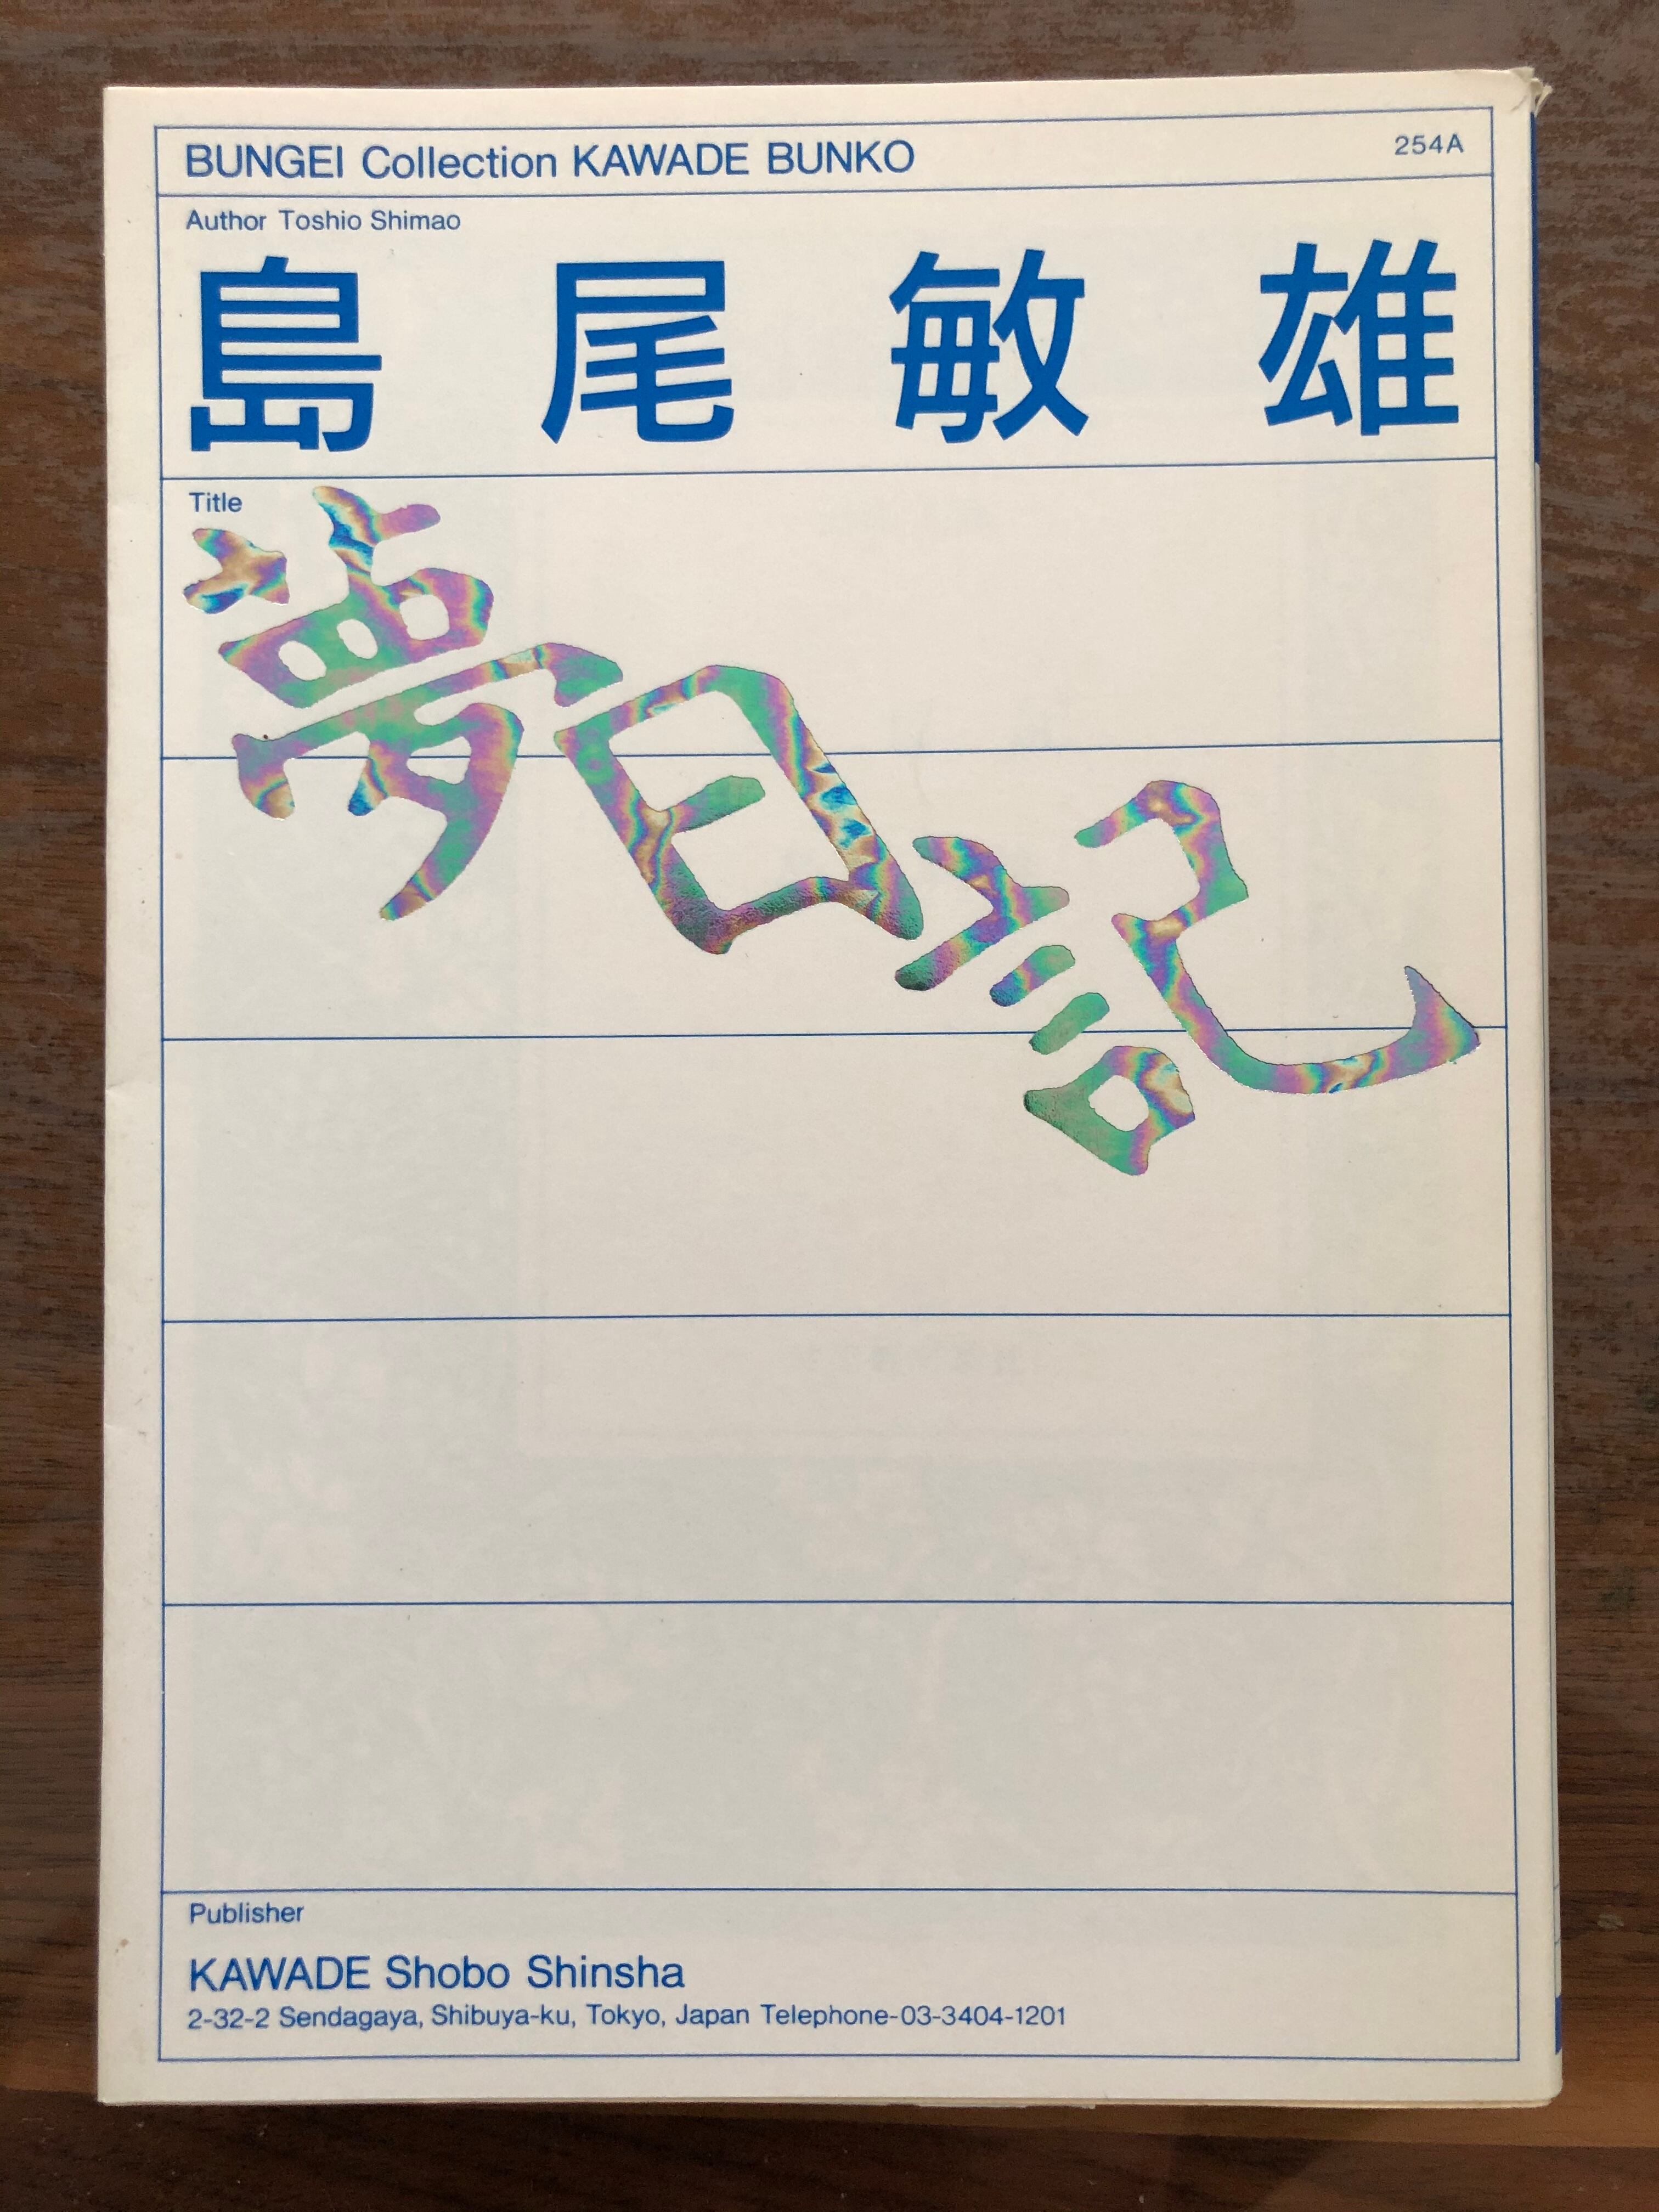 BUNGEI Collection KAWADE BUNKO
254A
Author Toshio Shimao
島尾敏雄
Title
夢日記
Publisher
KAWADE Shobo Shinsha
2-32-2 Sendagaya, Shibuya-ku, Tokyo, Japan Telephone-03-3404-1201